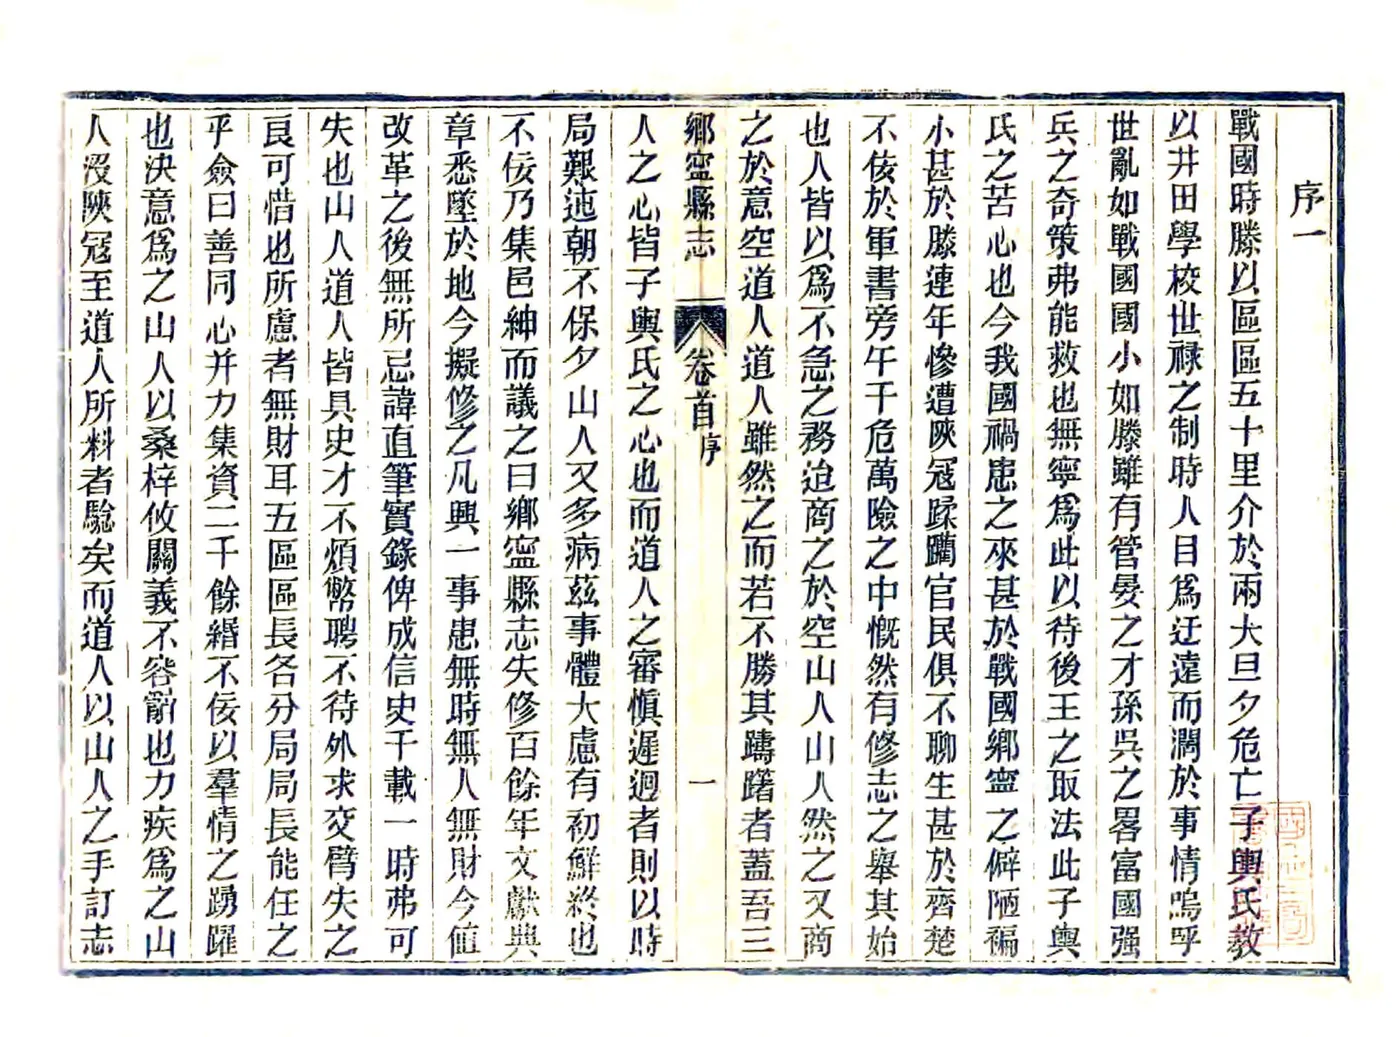 序一
戰國時滕以區區五十里介於兩大旦夕危亡子輿氏教
以井田學校世祿之制時人目爲迂遠而濶於事情嗚呼
世亂如戰國國小如滕雖有管晏之才孫吳之畧富國强
兵之奇策弗能救也無寧爲此以待後王之取法此子輿
氏之苦心也今我國禍患之來甚於戰國鄉寧之僻陋褊
小甚於滕連年慘遭陝冦蹂躪官民俱不聊生甚於齊楚
不侫於軍書旁午千危萬險之中慨然有修志之舉其始
也人皆以爲不急之務迨商之於空山人山人然之又商
之於意空道人道人雖然之而若不勝其躊躇者蓋吾三
鄉寧縣志 卷首 序 一
人之心皆子輿氏之心也而道人之審愼遲迴者則以時
局艱迍朝不保夕山人又多病茲事體大慮有初鮮終也
不侫乃集邑紳而議之曰鄉寧縣志失修百餘年文獻典
章悉墜於地今擬修之凡興一事患無時無人無財今値
改革之後無所忌諱直筆實錄俾成信史千載一時弗可
失也山人道人皆具史才不煩幣聘不待外求交臂失之
良可惜也所慮者無財耳五區區長各分局局長能任之
乎僉曰善同心并力集資二千餘緡不侫以羣情之踴躍
也決意爲之山人以桑梓攸關義不容辭也力疾爲之山
人沒陝冦至道人所料者驗矣而道人以山人之手訂志